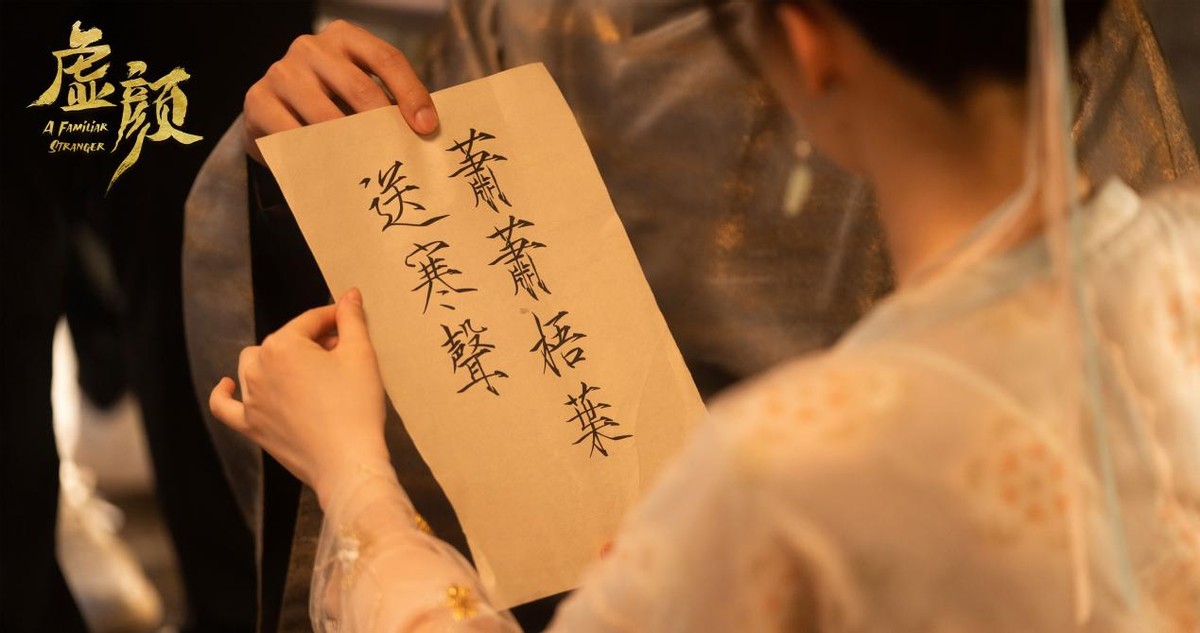 虛顏
A FAMILIAR
STRANGER
蕭蕭梧葉
送寒聲